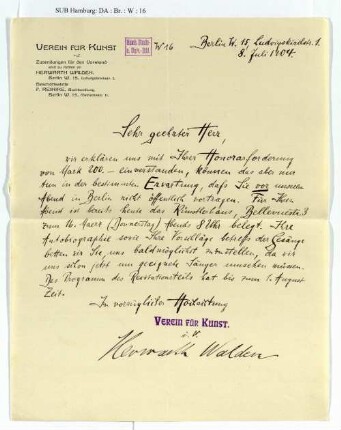 SUB Hamburg: DA : Br. : W : 16
VEREIN FÜR KUNST
Zusendungen für den Vorstand
sind zu richten an
HERWARTH WALDEN,
W 16
Berlin W. 15, Ludwigkirchstr. 1.
8. Juli 1904.
Sehr geehrter Herr,
wir erklären uns mit Ihrer Honorarforderung
von Mark 200.– einverstanden, können das aber nur
tun in der bestimmten Erwartung, daß Sie vor unserem
Abend in Berlin nicht öffentlich vortragen. Für Ihren
Abend ist bereits heute das Künstlerhaus, Bellevuestr. 3
zum 16. (Donnerstag) Abends 8 Uhr belegt. Ihre
Autobiographie sowie Ihre Vorschläge betreffs der Gesänge
bitten wir Sie, uns baldmöglichst zuzustellen, da wir
uns schon jetzt um geeignete Sänger umsehen müssen.
Das Programm des Recitationsteils hat bis zum 1. August
Zeit.
In vorzüglicher Hochachtung
VEREIN FÜR KUNST.
Herwarth Walden